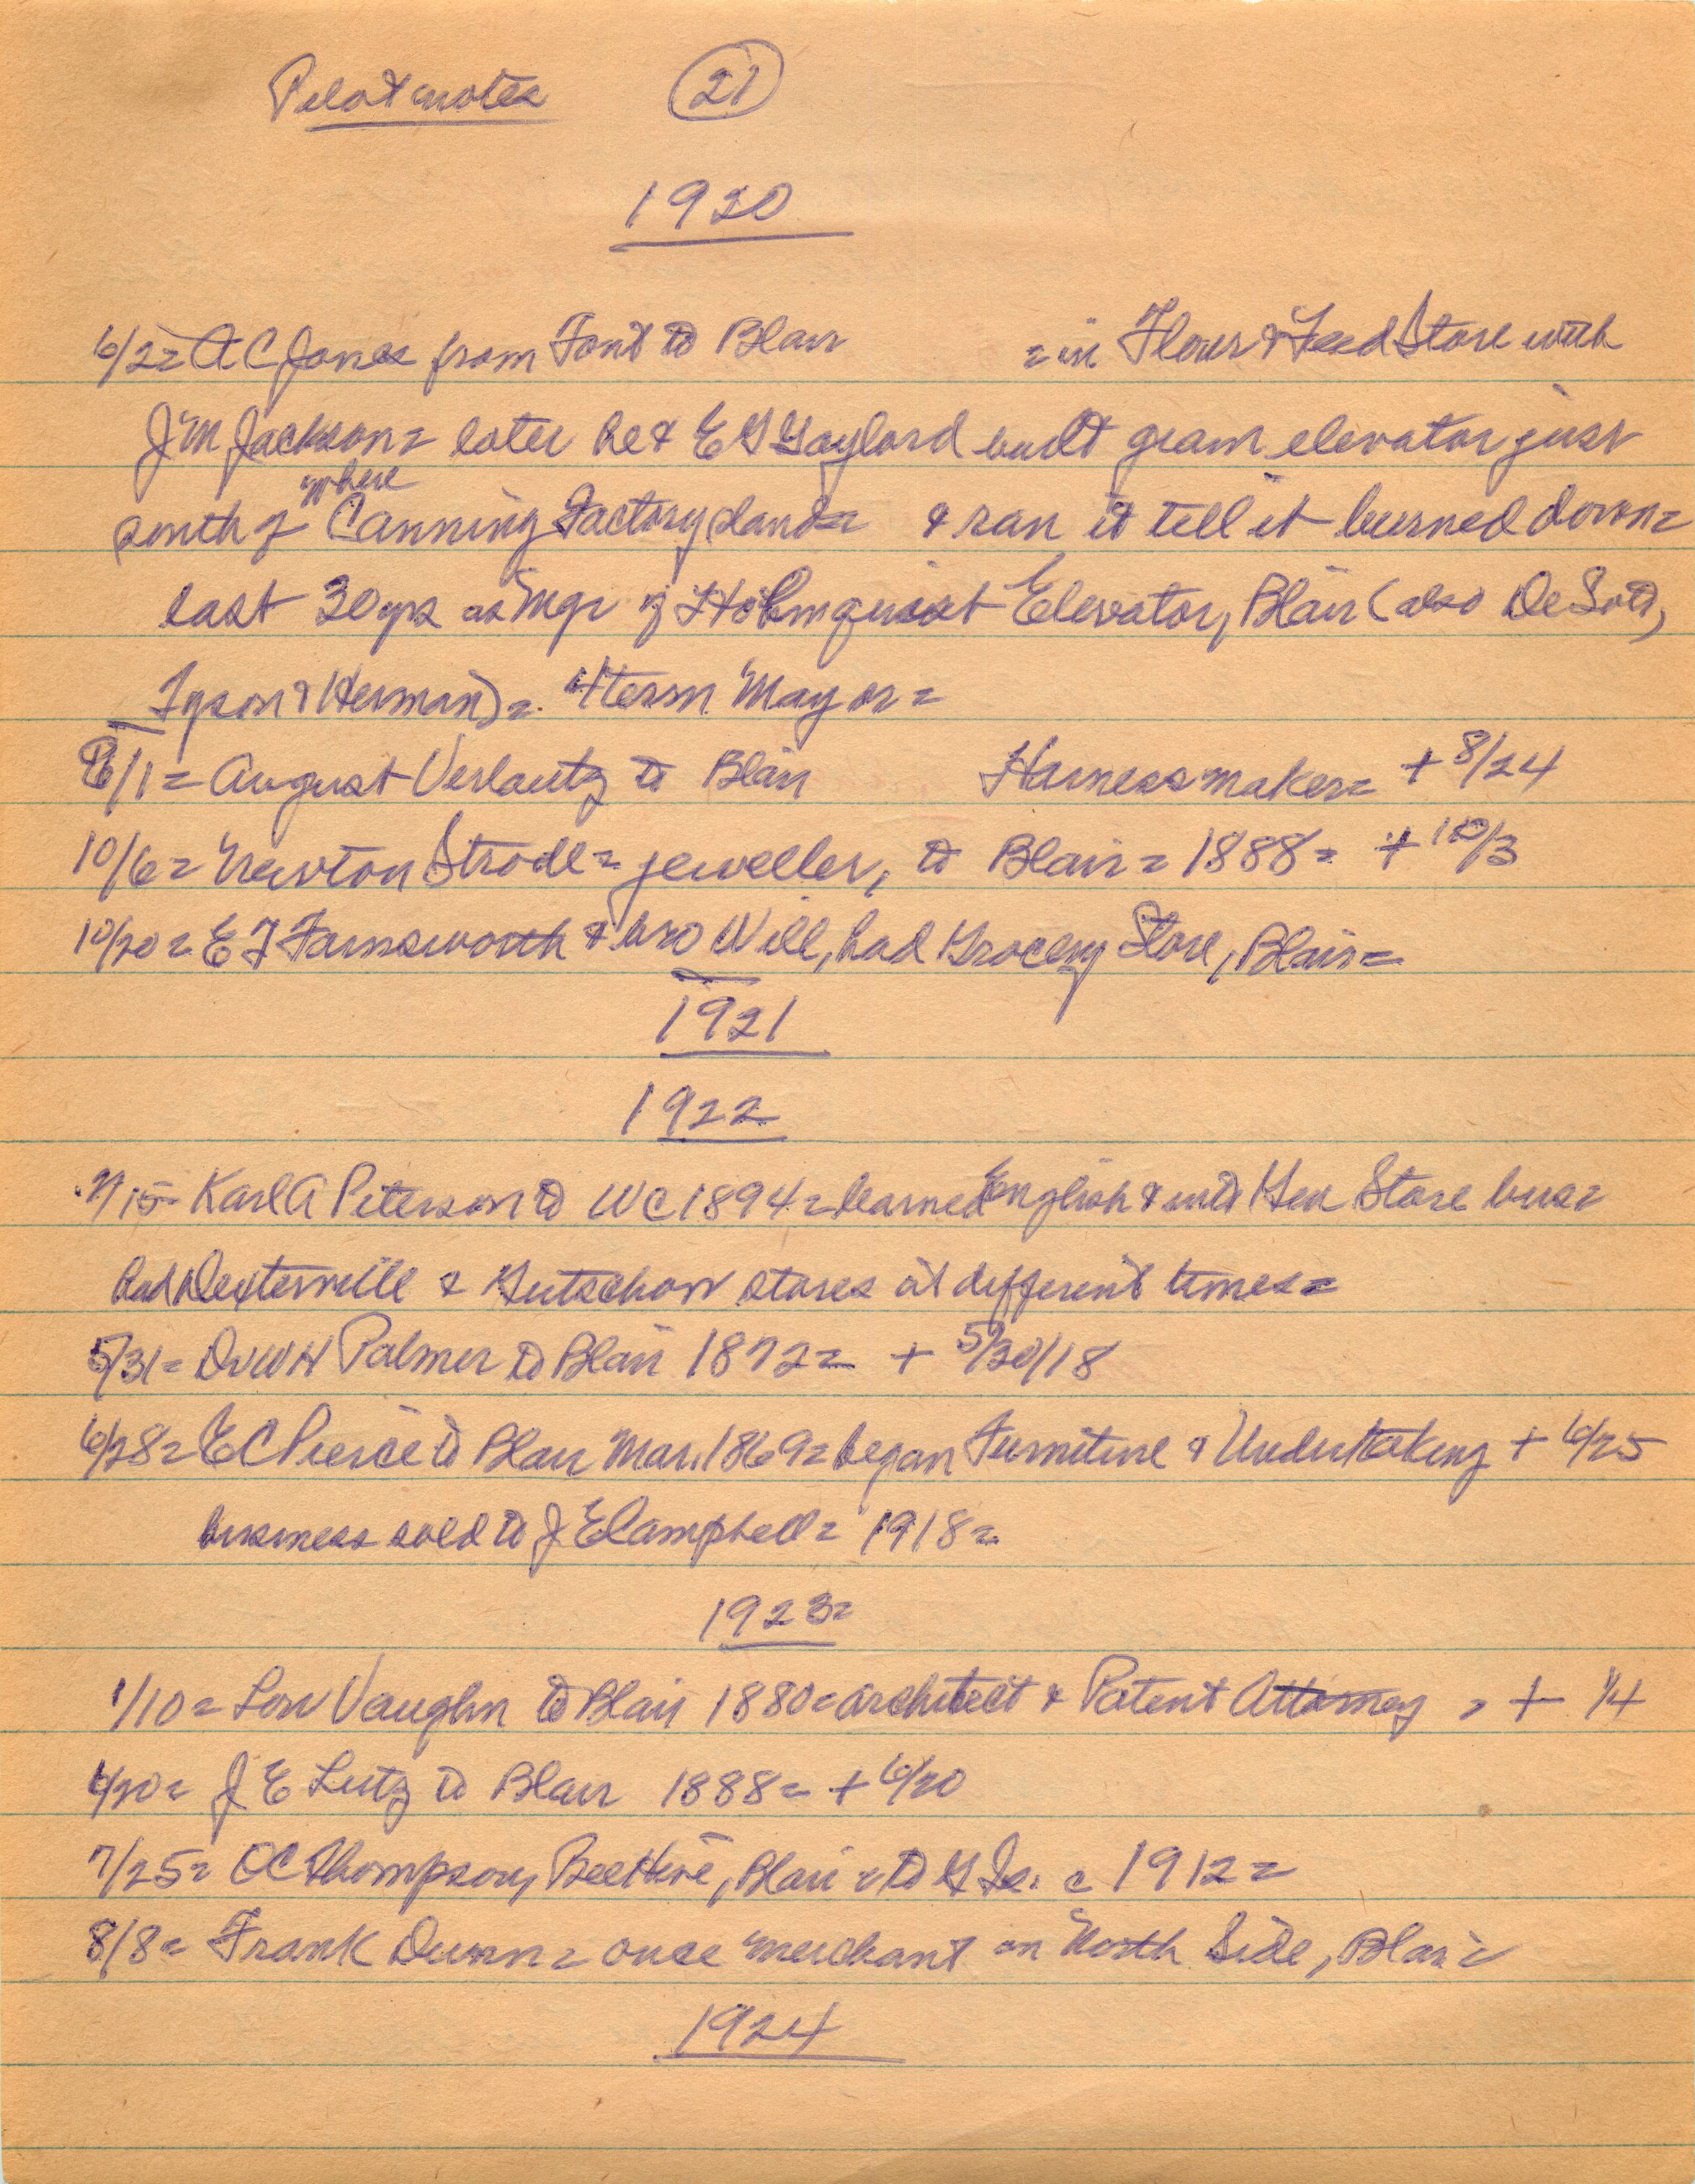 Pilot notes 21
1920
6/2= A C Jones from Font to Blair = in Flour & Feed Store with
J M Jackson= later he & E G Gaylord built grain elevator just
south of where Canning Factory stands & ran it till it burned down=
last 30 yrs as Mgr of Holmquist Elevator, Blair (also DeSoto,
Tyson & Herman)= 4 term Mayor=
/1= August Verlautz to Blair Harnessmaker= + 8/24
10/6= Newton Strodl= jeweller, to Blair= 1888= + 10/3
10/20= E F Farnsworth & bro Will, had Grocery Store, Blair=
1921
1922
/15= Karl A Peterson to WC 1894= learned English & into Gen Store bus=
had Dexterville & Gutschow stores at different times=
5/31= Dr W H Palmer to Blair 1872= + 5/30/18
6/28= E C Pierce to Blair Mar. 1869= began Furniture & Undertaking + 6/25
business sold to J E Campbell= 1918=
1923=
1/10= Lon Vaughn to Blair 1880= architect & Patent Attorney = + 1/4
6/20= J E Lutz to Blair 1888= + 6/20
7/25= O C Thompson, BeeHive, Blair = to G Is. = 1912=
8/8= Frank Dunn= once merchant on North Side, Blair=
1924